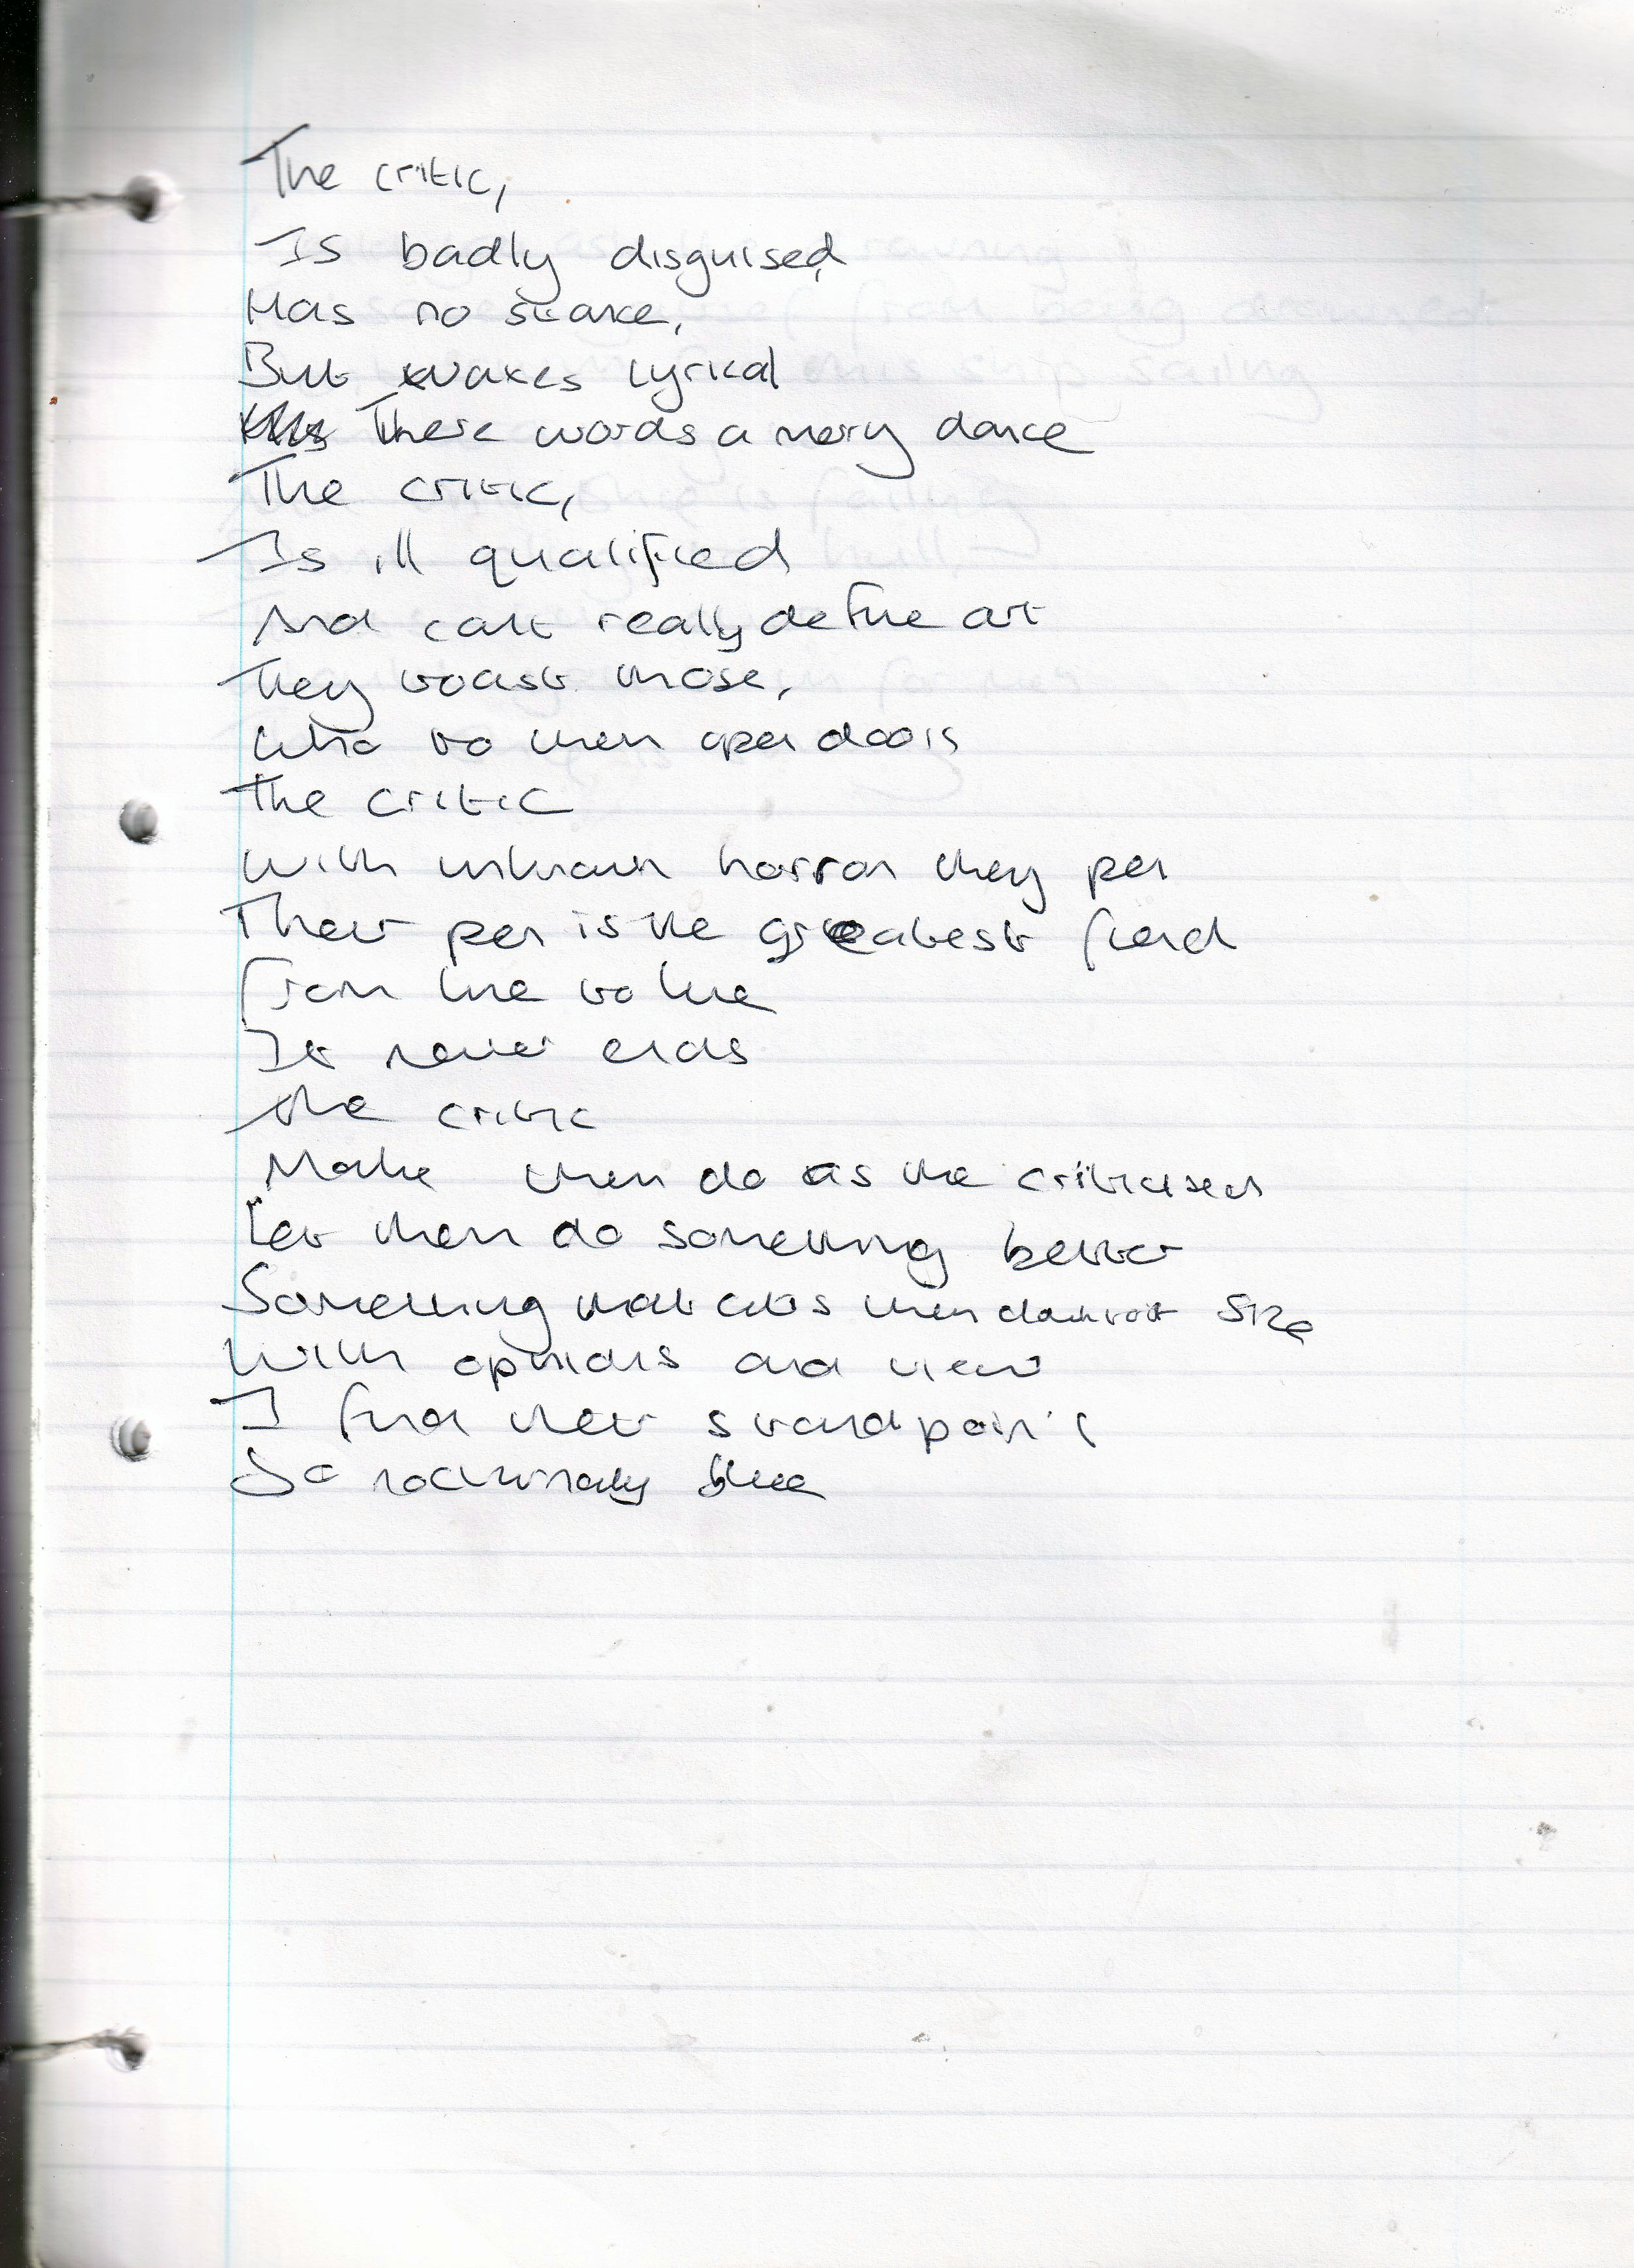 The critic,
Is badly disguised,
Has no stance,
But waxes lyrical
There words a merry dance
The critic,
Is ill qualified
And cant really define art
They toast those,
Who to them open doors
The critic
With unknown horror they pen
Their pen is the greatest fiend
From line to line
It never ends
The critic
Make them do as the criticised
Let them do something better
Something that cuts them down to size
With opinions and view
I find their standpoint
So nocturnally blue